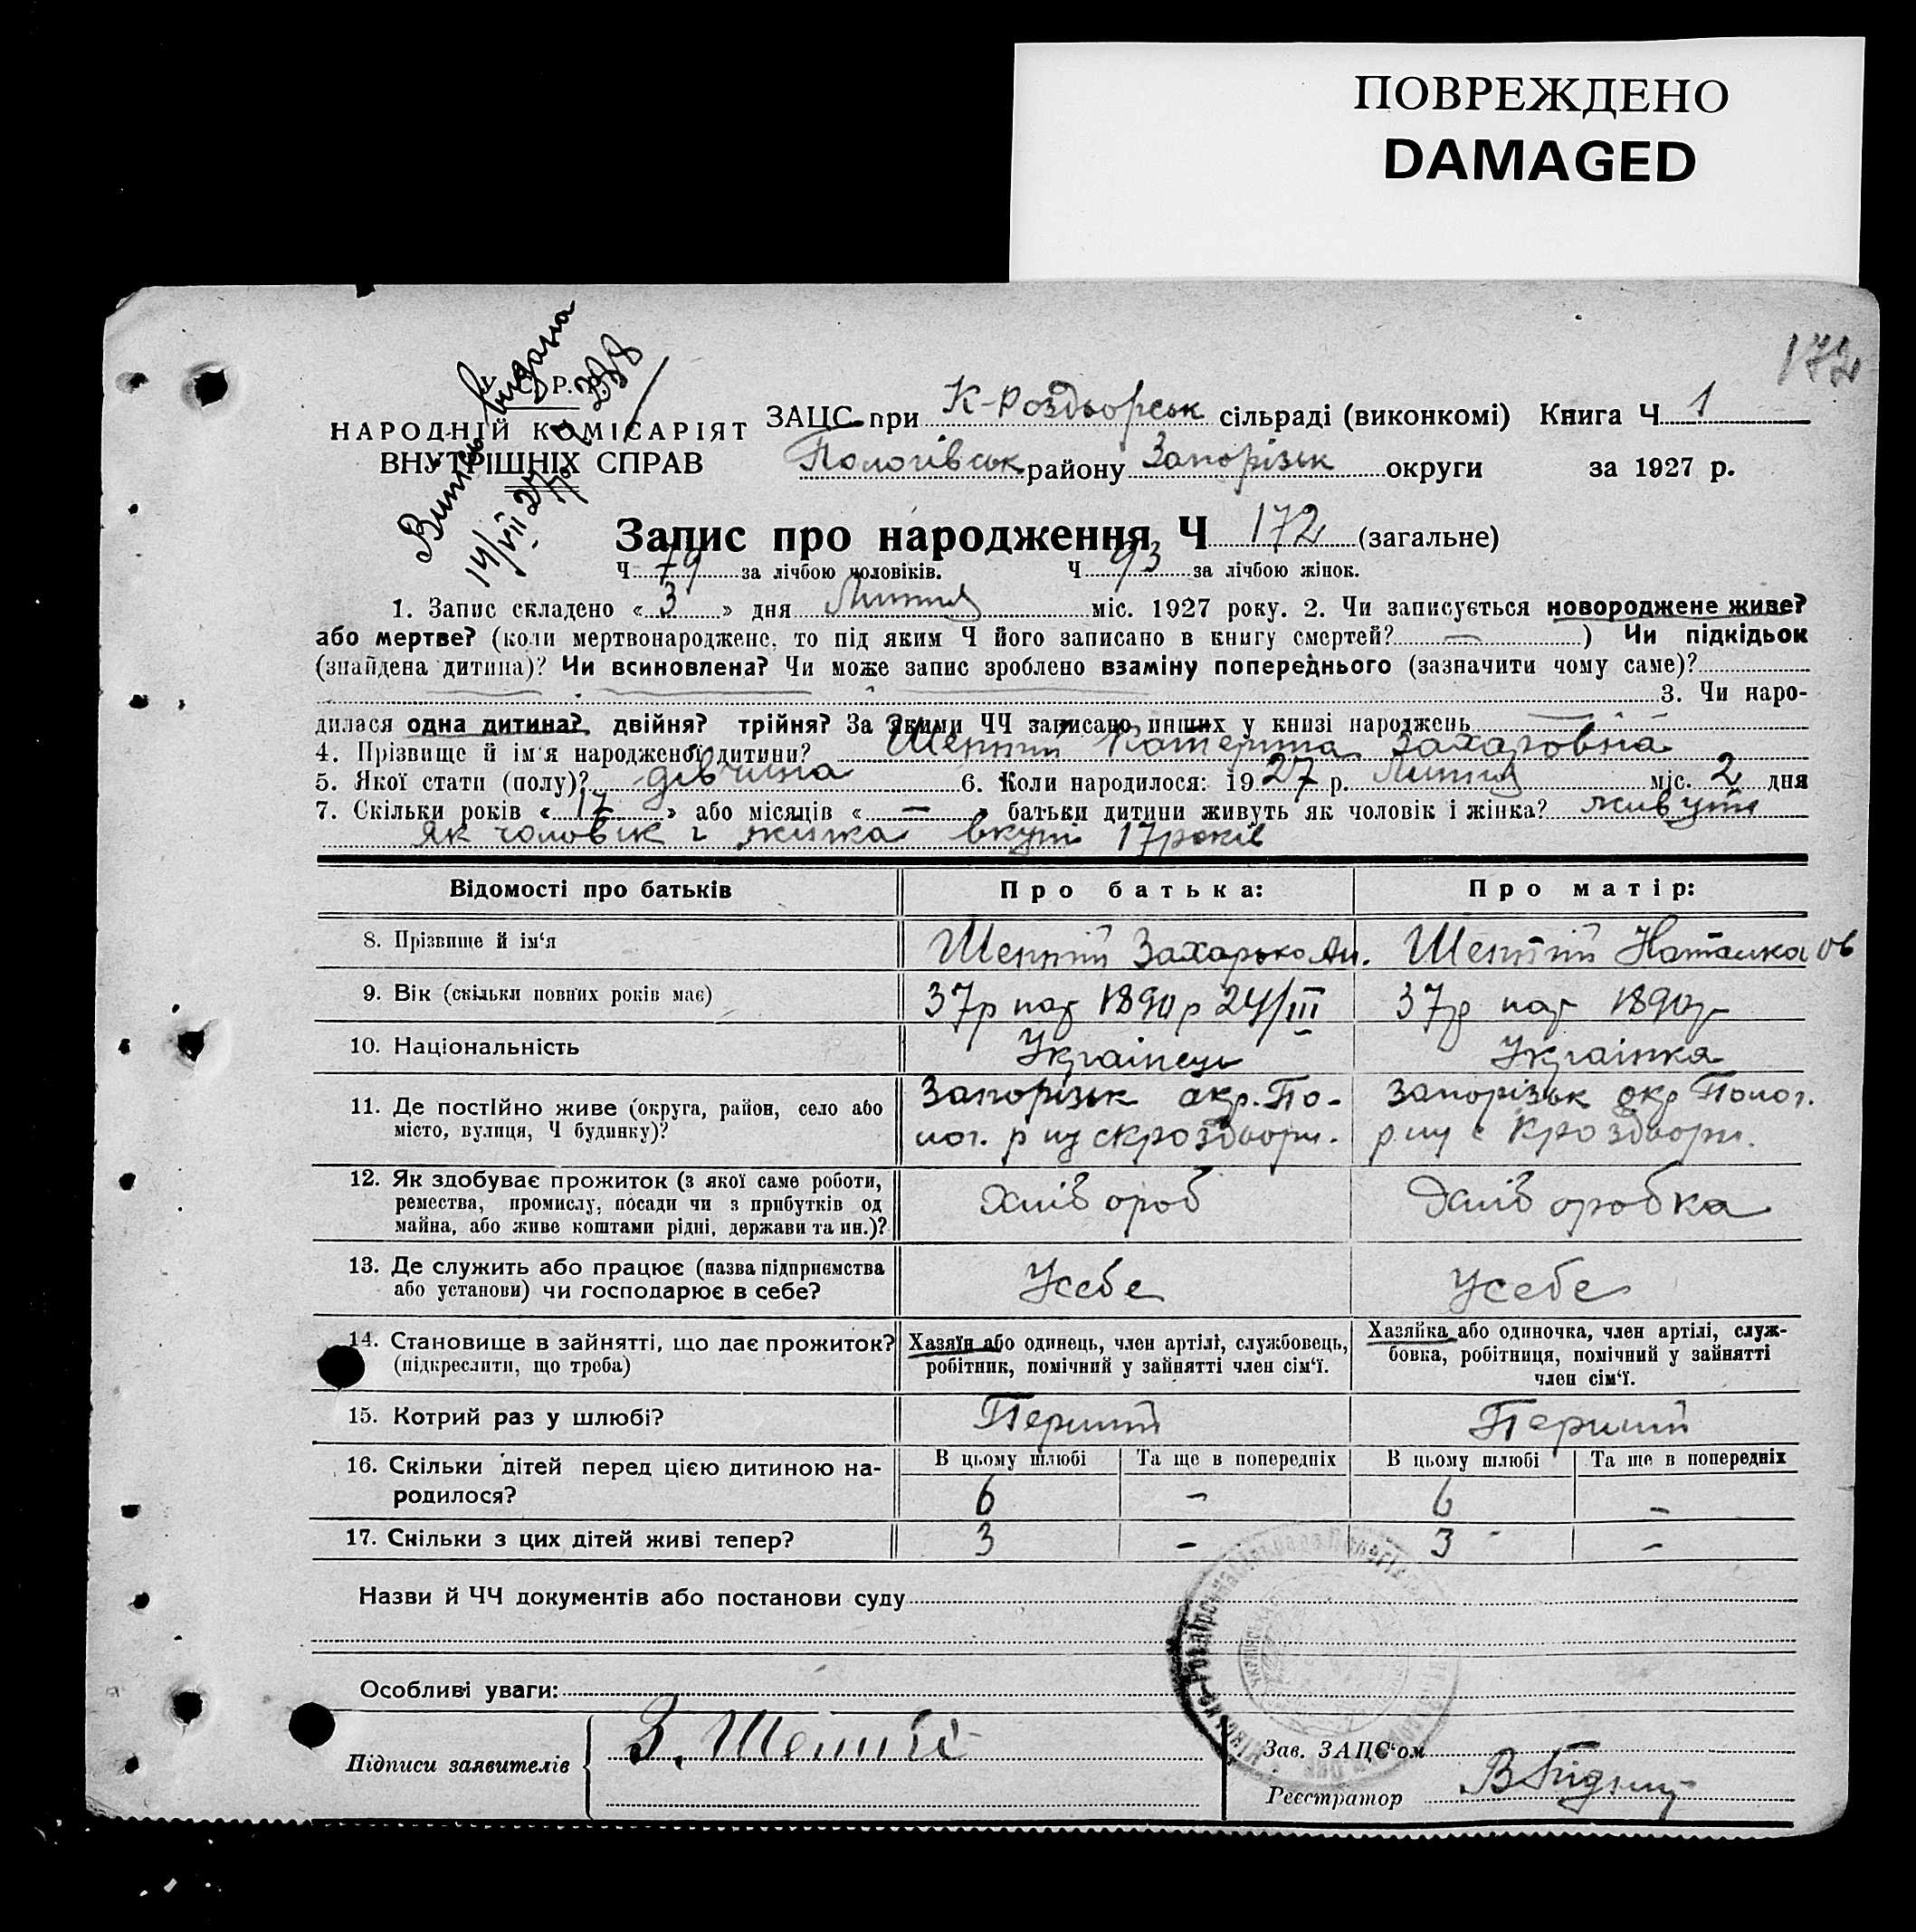 ПОВРЕЖДЕНО
DAMAGED
172
Випись видана
14/VII 27 р. 238
У. С. Р. Р.
НАРОДНІЙ КОМІСАРІЯТ
ВНУТРІШНІХ СПРАВ
ЗАЦС при К-Роздворськ сільраді (виконкомі) Книга Ч 1
Пологівськ району Запорізьк округи за 1927 р.
Запис про народження Ч 172 (загальне)
Ч 79 за лічбою чоловіків. Ч 93 за лічбою жінок.
1. Запис складено « 3 » дня Липня міс. 1927 року. 2. Чи записується новороджене живе?
або мертве? (коли мертвонароджене, то під яким Ч його записано в книгу смертей? — ) Чи підкідьок
(знайдена дитина)? Чи всиновлена? Чи може запис зроблено взаміну попереднього (зазначити чому саме)?
3. Чи наро-
дилася одна дитина? двійня? трійня? За якими ЧЧ записано инших у книзі народжень —
4. Прізвище й ім'я народженої дитини? Шептій Катерина Захаровна
5. Якої стати (полу)? дівчина 6. Коли народилося: 1927 р. Липня міс. 2 дня
7. Скільки років « 17 » або місяців « — » батьки дитини живуть як чоловік і жінка? живуть
як чоловік і жинка вкупі 17 років
Відомості про батьків Про батька: Про матір:
8. Прізвище й ім‘я Шептій Захарько Ан. Шептій Наталка
9. Вік (скільки повних років має) 37р нар 1890 р 24/III 37р нар 1890р
10. Національність Українець Українка
11. Де постійно живе (округа, район, село або
місто, вулиця, Ч будинку)? Запорізьк окр. По-
лог. р ну с Кроздворн. Запорізьк окр Полог.
р ну с Кроздворн.
12. Як здобуває прожиток (з якої саме роботи,
ремества, промислу, посади чи з прибутків од
майна, або живе коштами рідні, держави та ин.)? Хлібороб Хліборобка
13. Де служить або працює (назва підприємства
або установи) чи господарює в себе? Усебе Усебе
14. Становище в зайнятті, що дає прожиток?
(підкреслити, що треба)
Хазяїн або одинець, член артілі, службовець,
робітник, помічний у зайнятті член сім‘ї.
Хазяйка або одиночка, член артілі, служ-
бовка, робітниця, помічний у зайнятті
член сім‘ї.
15. Котрий раз у шлюбі? Перший Перший
16. Скільки дітей перед цією дитиною на-
родилося?
В цьому шлюбі Та ще в попередніх В цьому шлюбі Та ще в попередніх
6 – 6 –
17. Скільки з цих дітей живі тепер? 3 – 3 –
Назви й ЧЧ документів або постанови суду
Особливі уваги:
Підписи заявителів З. Шептій
Зав. ЗАЦС‘ом
Реєстратор